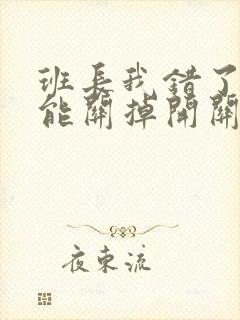 班长我错了
能關掉開關
夜東流